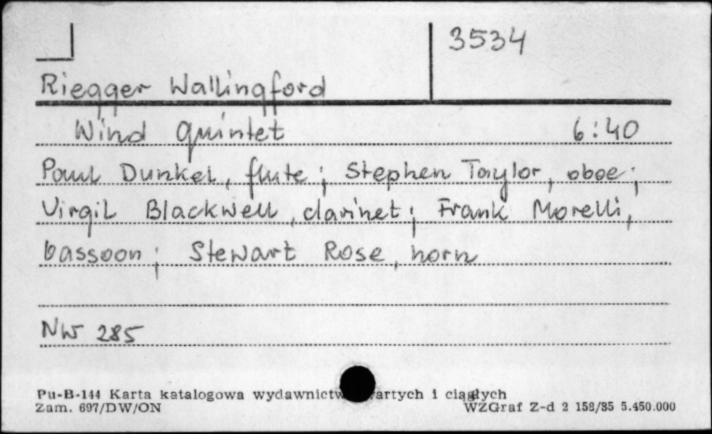 3534
Riegger Wallingford
Wind quintet 6:40
Paul Dunkel, flute; Stephen Taylor, oboe;
Virgil Blackwell, clarinet; Frank Morelli,
bassoon; Stewart Rose, horn
NW 285
Pu-B-144 Karta katalogowa wydawnictw artych i ciągłych
Zam. 697/DW/ON WZGraf Z-d 2 158/85 5.450.000